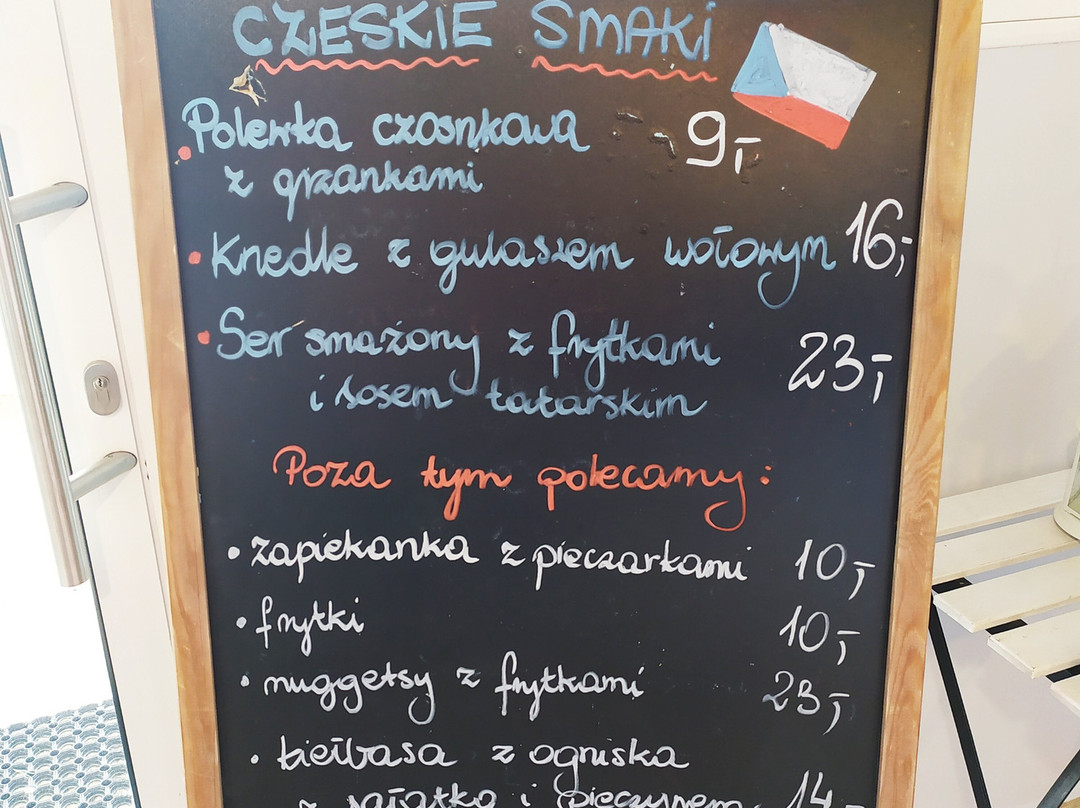 CZESKIE SMAKi
Polewka czosnkowa 9,-
z grzankami
• Knedle z gulaszem wołowym 16,-
• Ser smażony z frytkami 23,-
i sosem tatarskim
Poza tym polecamy:
• zapiekanka z pieczarkami 10,-
• frytki 10,-
• nuggetsy z frytkami 23,-
• kiełbasa z ogniska
z sałatką i pieczywem 14,-